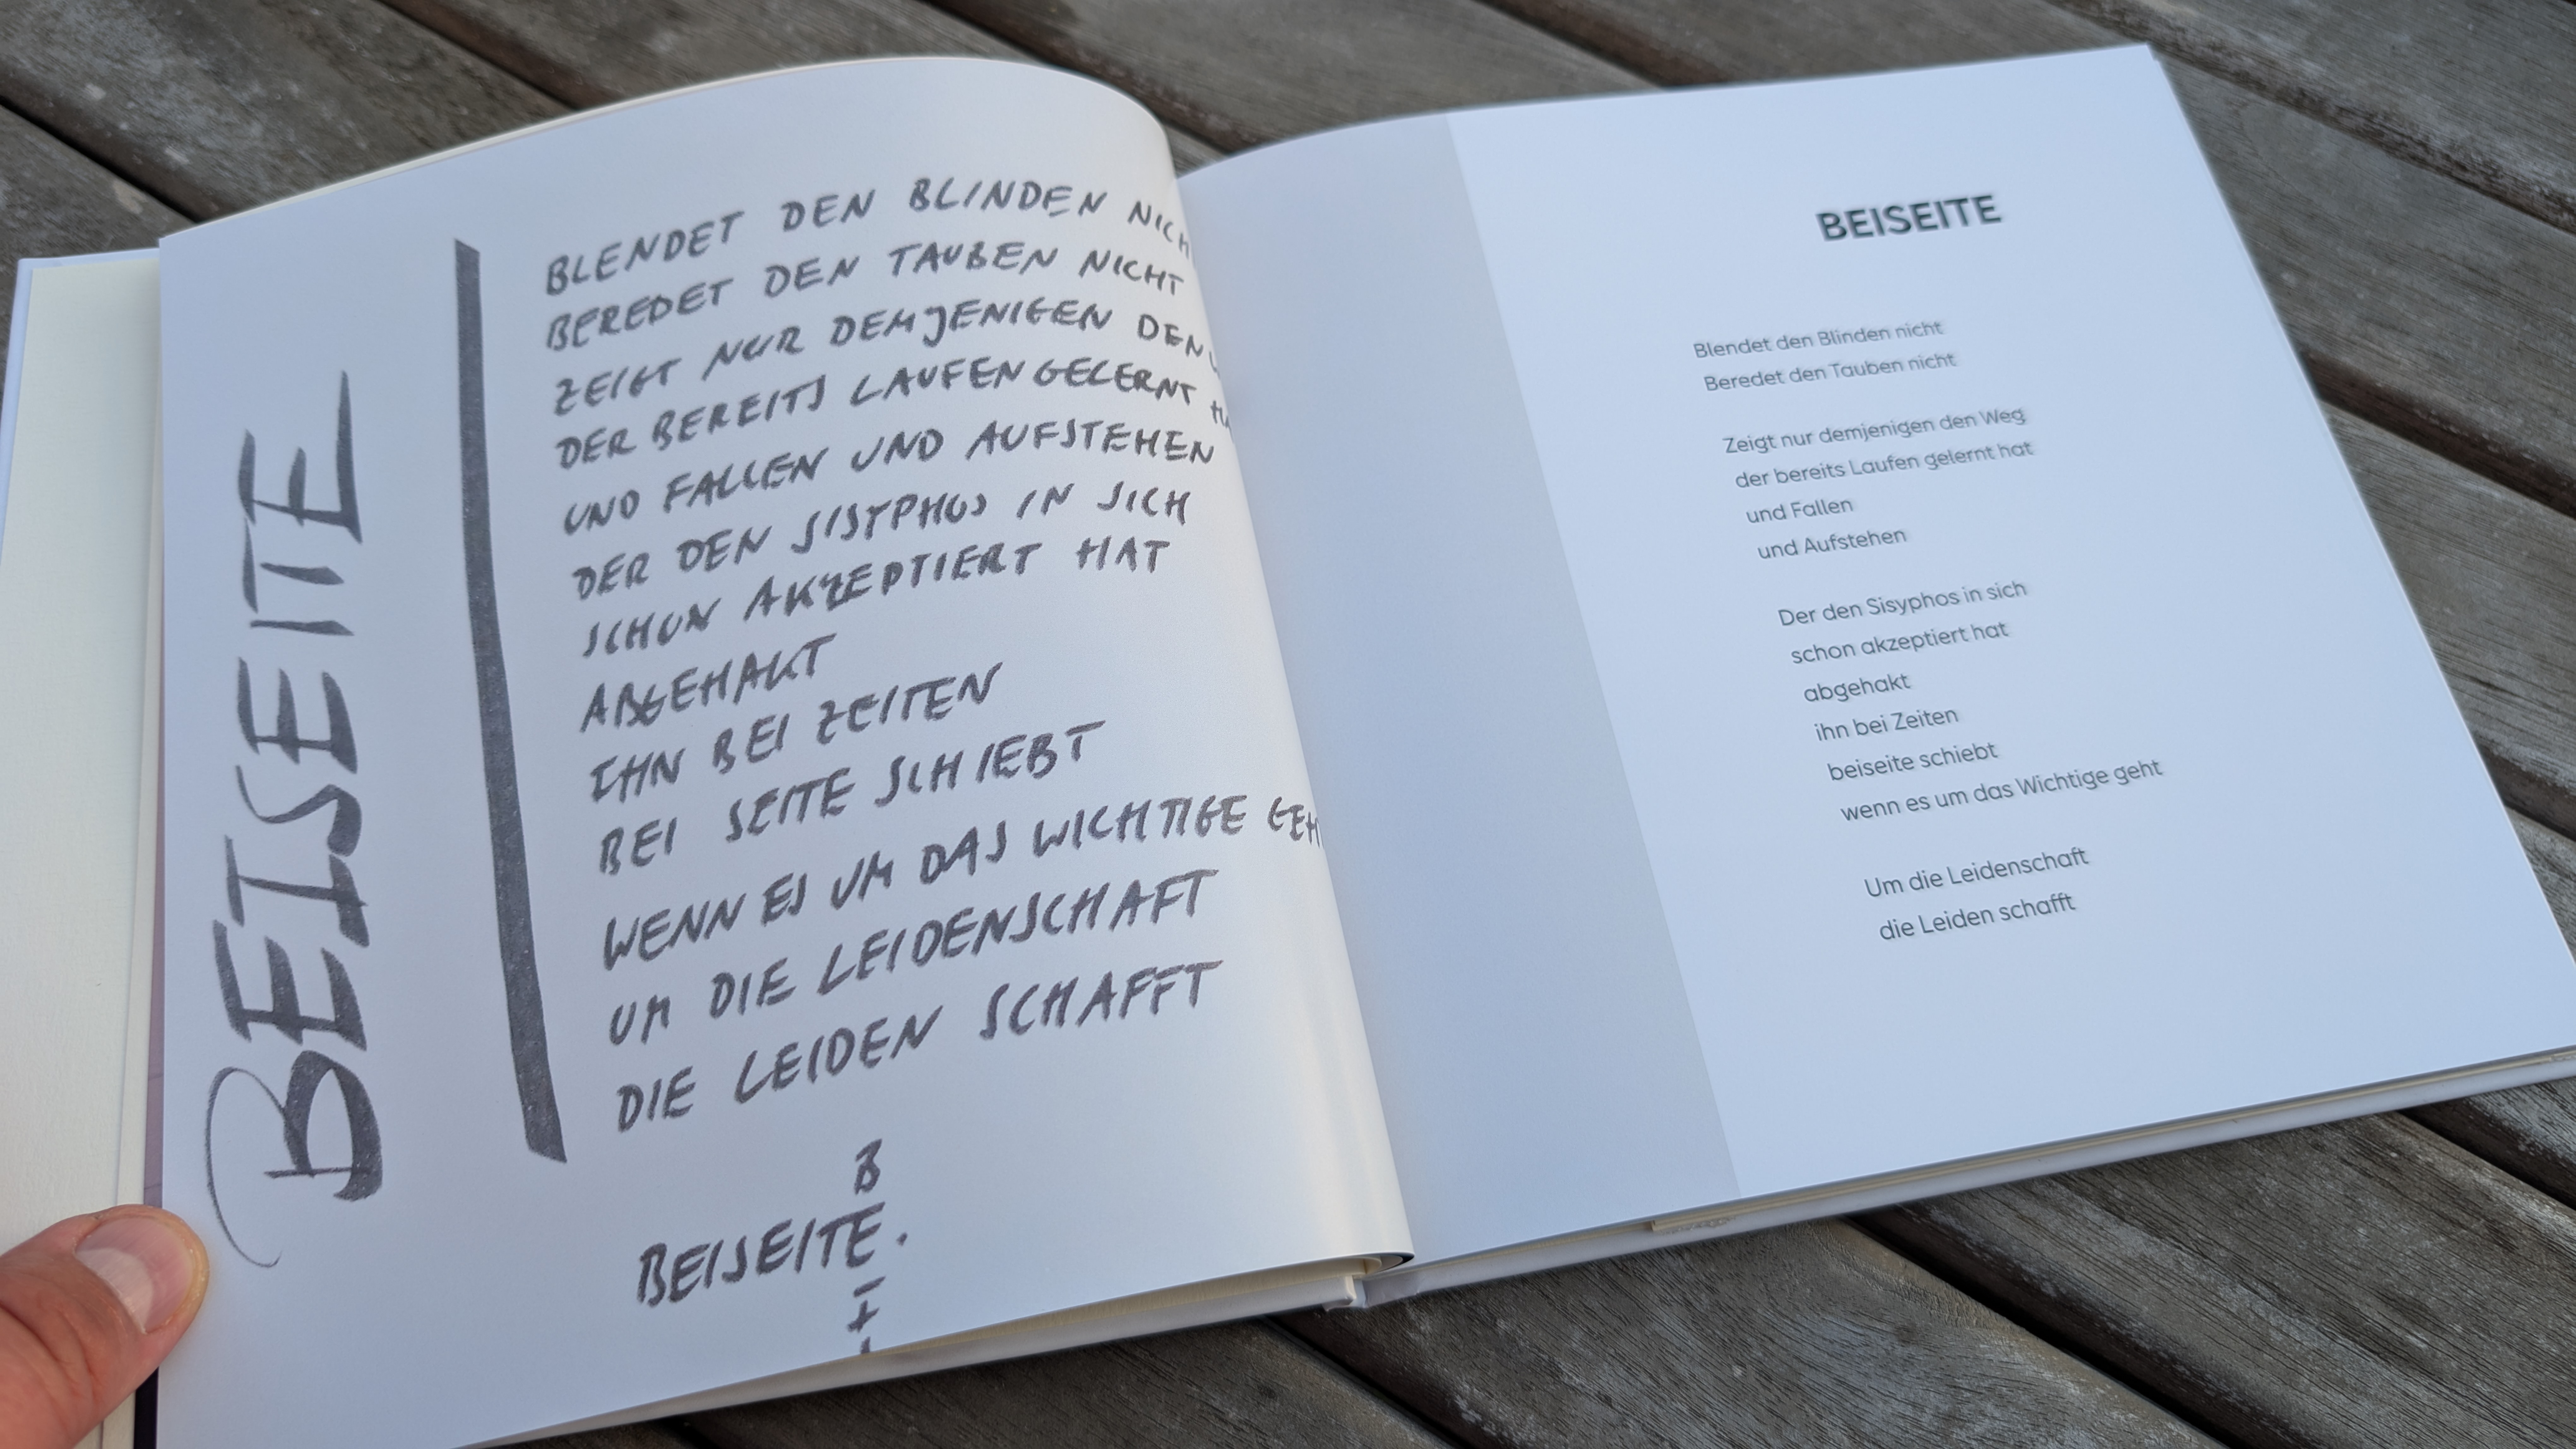 BEISEITE
BLENDET DEN BLINDEN NICH
BEREDET DEN TAUBEN NICHT
ZEIGT NUR DEMJENIGEN DEN
DER BEREITS LAUFEN GELERNT HA
UND FALLEN UND AUFSTEHEN
DER DEN SISYPHOS IN SICH
SCHON AKZEPTIERT HAT
ABGEHAKT
IHN BEI ZEITEN
BEI SEITE SCHIEBT
WENN ES UM DAS WICHTIGE GEH
UM DIE LEIDENSCHAFT
DIE LEIDEN SCHAFFT
B
BEISEITE.
BEISEITE
Blendet den Blinden nicht
Beredet den Tauben nicht
Zeigt nur demjenigen den Weg
der bereits Laufen gelernt hat
und Fallen
und Aufstehen
Der den Sisyphos in sich
schon akzeptiert hat
abgehakt
ihn bei Zeiten
beiseite schiebt
wenn es um das Wichtige geht
Um die Leidenschaft
die Leiden schafft